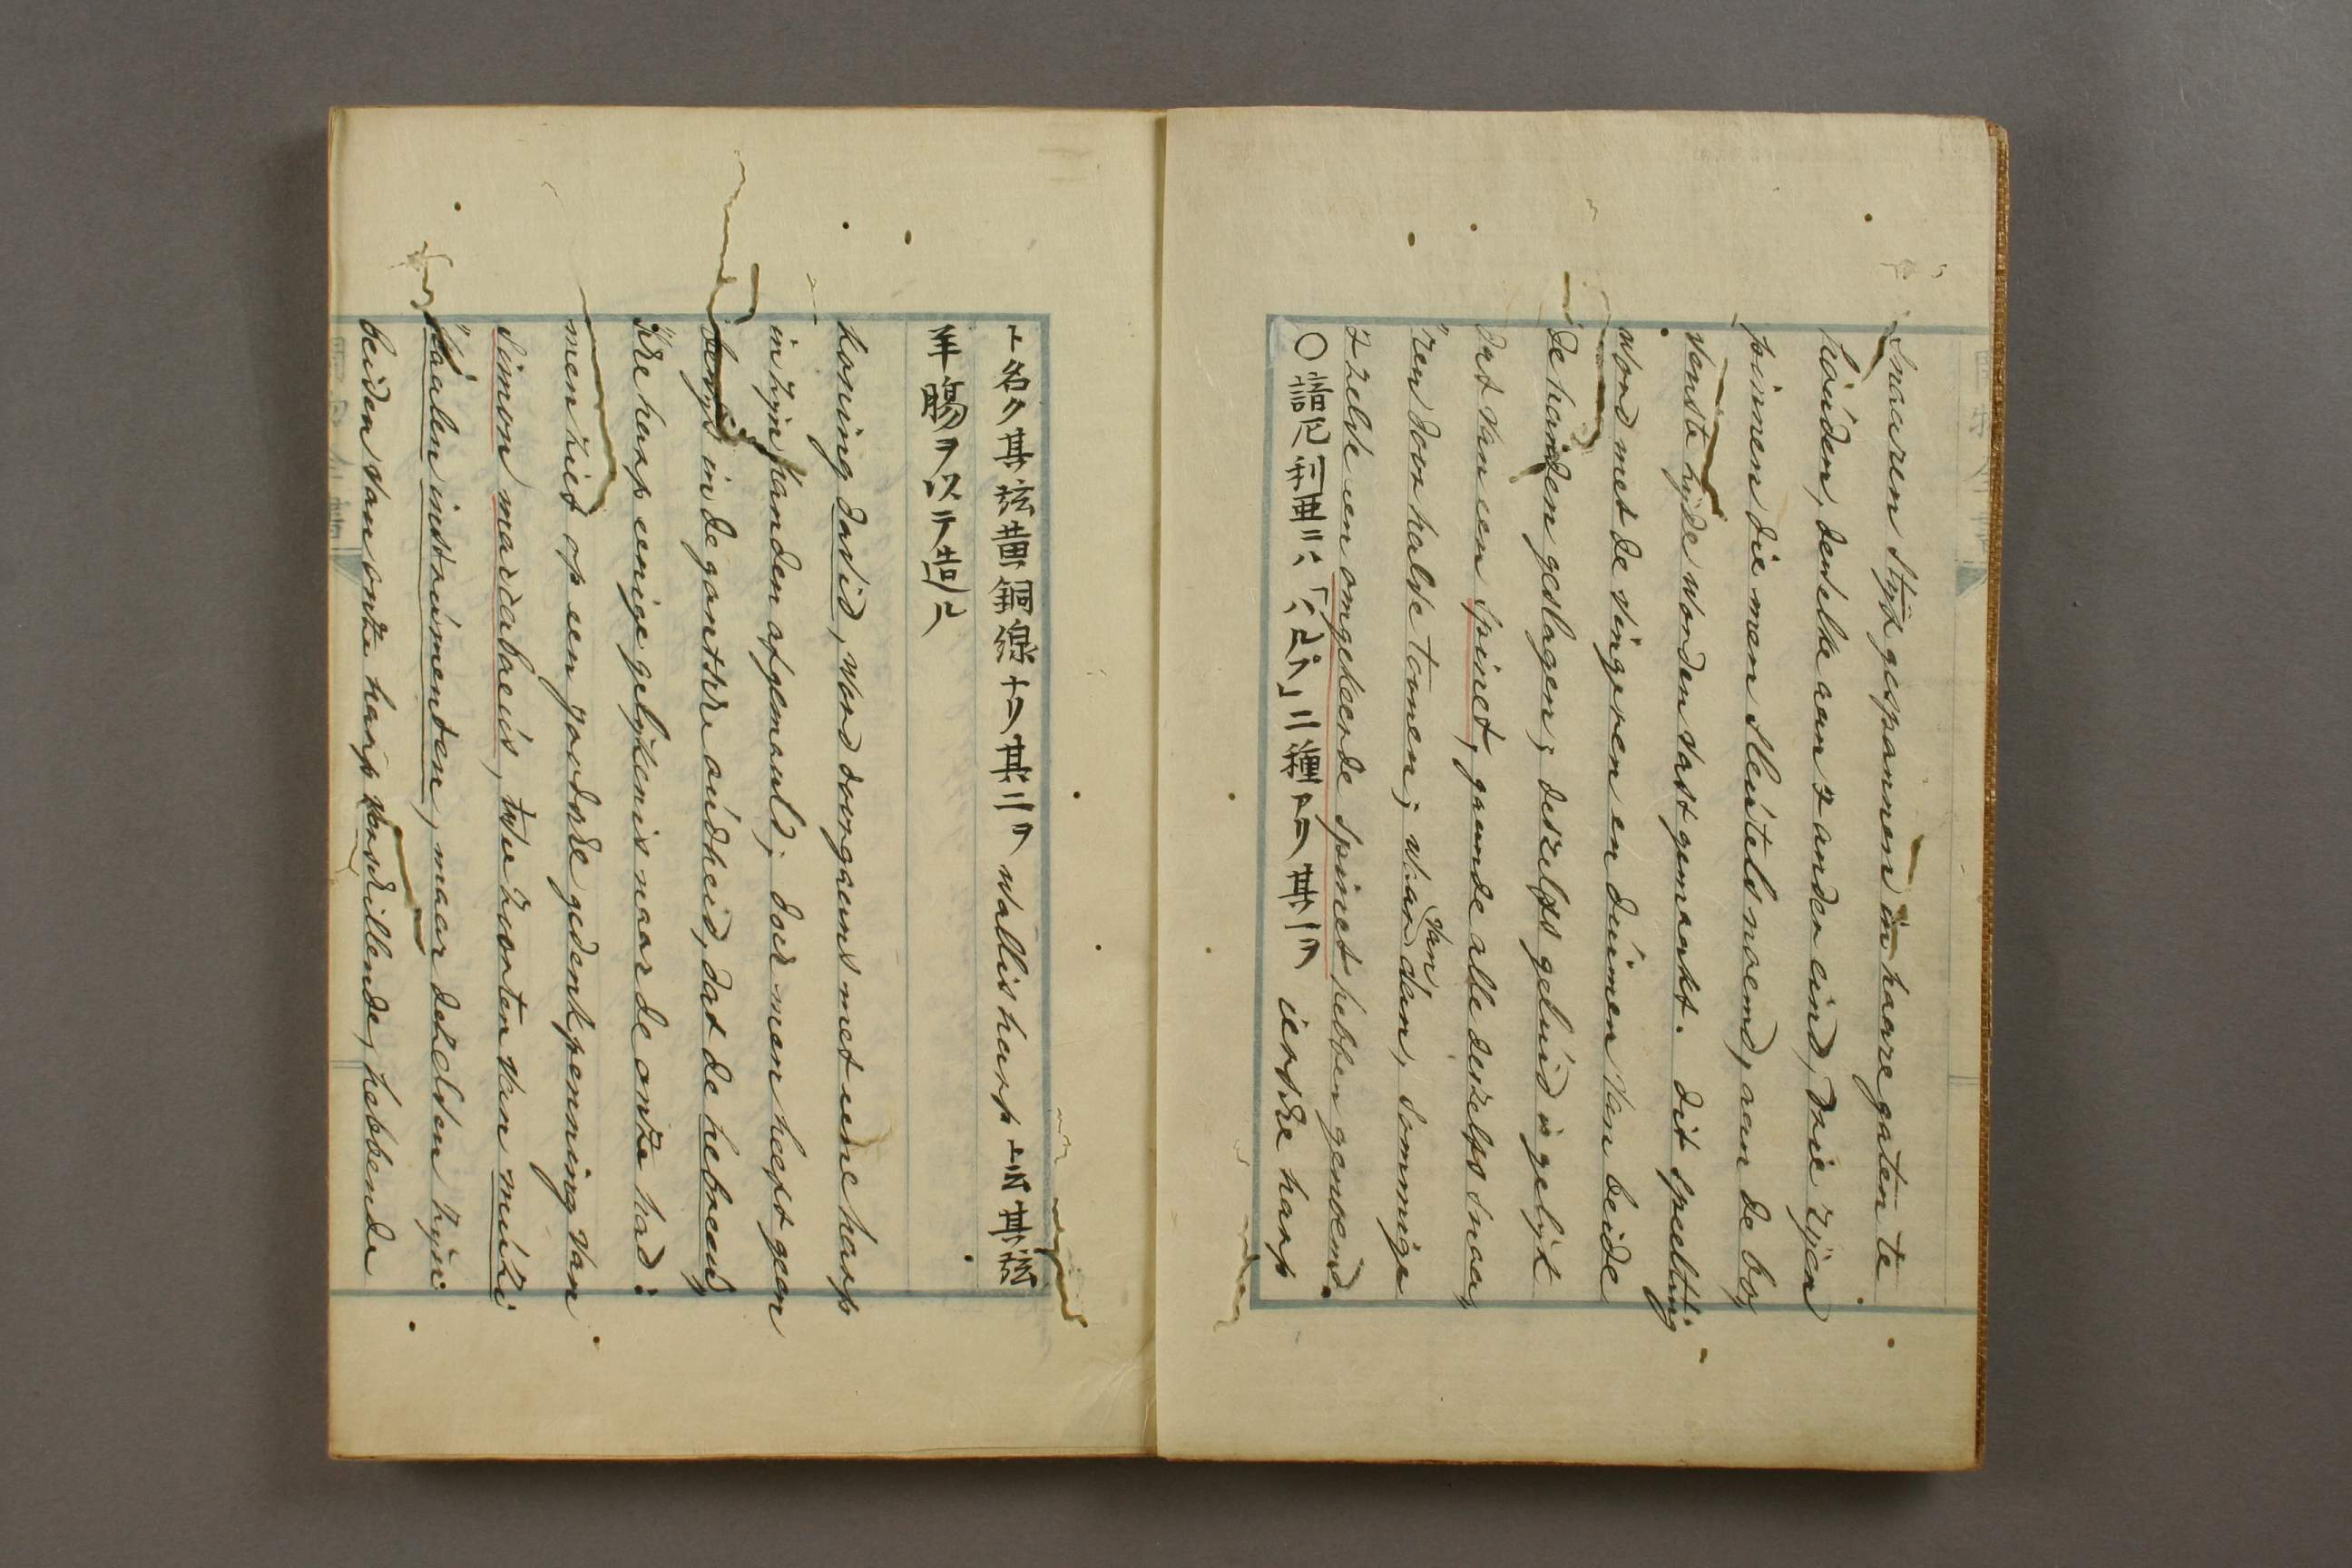 snaaren styf gespannen in haare gaten te
houden, dewelke aan 't ander eind, drie zijen
pinnen die men sleutels noemd, aan de bo,
venste zyde worden vast gemaakt. dit speeltuig
word met de vingeren en duimen van beide
de handen geslagen; deszelfs geluid is gelyk
dat van een spinet, gaande alle deszelfs snaa,
ren door halve toonen; waar van dan, sommige
't zelve een omgekeerde spinet hebben genoemd.
○諳厄利亜ニハ「ハルプ」二種アリ其一ヲ iersche harp
ト名ク其弦黄銅線ナリ其二ヲ wallis harp ト云其弦
羊腸ヲ以テ造ル
koning david, word doorgaens met eene harp
in zyn handen afgemaald; doch men heeft geen
bewys in de gantsche oudheid, dat de hebreeuw,
sche harp eenige gelykenis naar de onze had:
men ziet op een joodsche gedenkpenning van
simon maccabaeus, twee zoorten van muzi
kaalen instrumenten, maar dezelven zyn
beiden van onze harp verschillende, hebbende